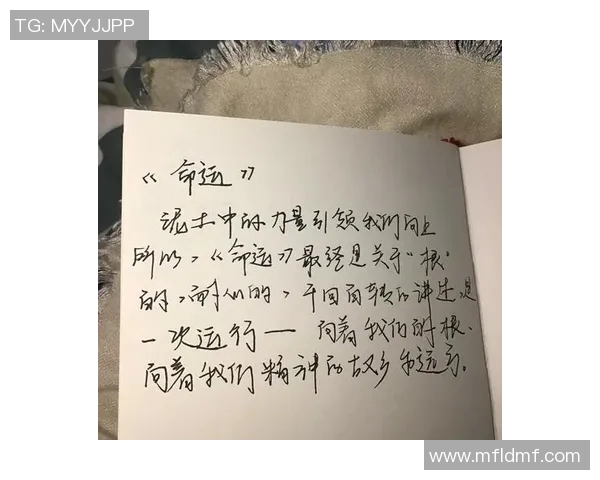 TG: MYYJJPP
《命运》
泥土中的力量引领我们向上
所以,《命运》最终是关于“根”
的,耐人的,千回百转的讲述,是
一次运行一 向着我们的根、
向着我们精神的故乡和远方。
www.mfldmf.com